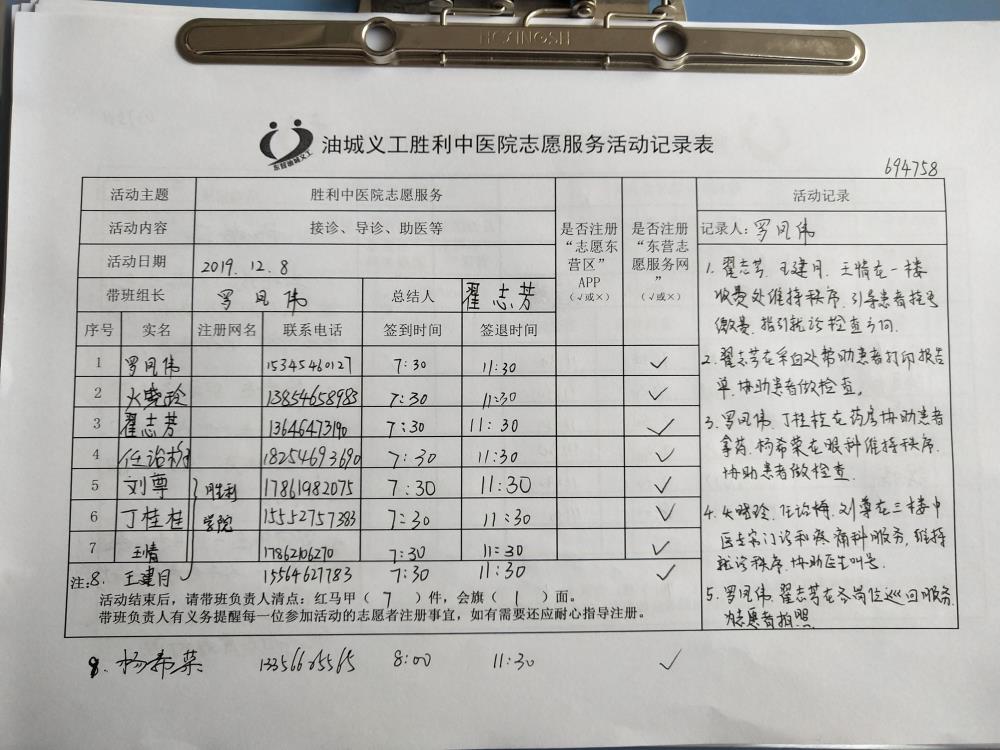 HCXINGSH
东营油城义工
油城义工胜利中医院志愿服务活动记录表
694758
活动主题 胜利中医院志愿服务
活动内容 接诊、导诊、助医等
活动日期 2019.12.8
带班组长 罗凤伟 总结人 翟志芳
是否注册“志愿东营区”APP（√或×）
是否注册“东营志愿服务网”（√或×）
序号 实名 注册网名 联系电话 签到时间 签退时间
1 罗凤伟 15345460127 7:30 11:30 ✓
2 火晓玲 13854658983 7:30 11:30 ✓
3 翟志芳 13646473190 7:30 11:30 ✓
4 任治梅 18254693690 7:30 11:30 ✓
5 刘尊 胜利 17861982075 7:30 11:30 ✓
6 丁桂桂 学院 15552757383 7:30 11:30 ✓
7 王情 17862106270 7:30 11:30 ✓
注:8. 王建月 15564627783 7:30 11:30 ✓
活动结束后，请带班负责人清点：红马甲（ 7 ）件，会旗（ 1 ）面。
带班负责人有义务提醒每一位参加活动的志愿者注册事宜，如有需要还应耐心指导注册。
9. 杨希荣 8:00 11:30 ✓
活动记录
记录人：罗凤伟
1. 翟志芳、王建月、王情在一楼
收费处维持秩序.引导患者挂号
缴费.指引就诊检查方向.
2. 翟志芳在采血处帮助患者打印报告
单.协助患者做检查。
3. 罗凤伟.丁桂桂在药房协助患者
拿药.杨希荣在眼科维持秩序.
协助患者做检查.
4. 火晓玲、任治梅.刘尊在三楼中
医专家门诊和疼痛科服务.维持
就诊秩序.协助医生叫号.
5. 罗凤伟.翟志芳在各岗位巡回服务.
为志愿者拍照.